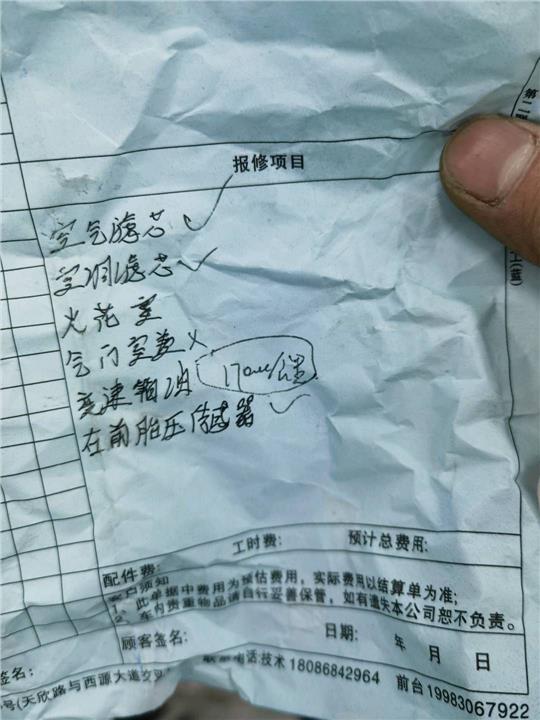 第二联
报修项目
空气滤芯 ✓
空调滤芯 ✓
火花塞
气门室垫 ×
变速箱油
在前胎压传感器 ✓
工(蓝)
工时费: 预计总费用:
配件费:
客户须知
1、此单据中费用为预估费用，实际费用以结算单为准;
2、车内贵重物品请自行妥善保管，如有遗失本公司恕不负责。
顾客签名: 日期: 年 月 日
签名:
号(天欣路与西源大道交 电话:技术18086842964 前台19983067922